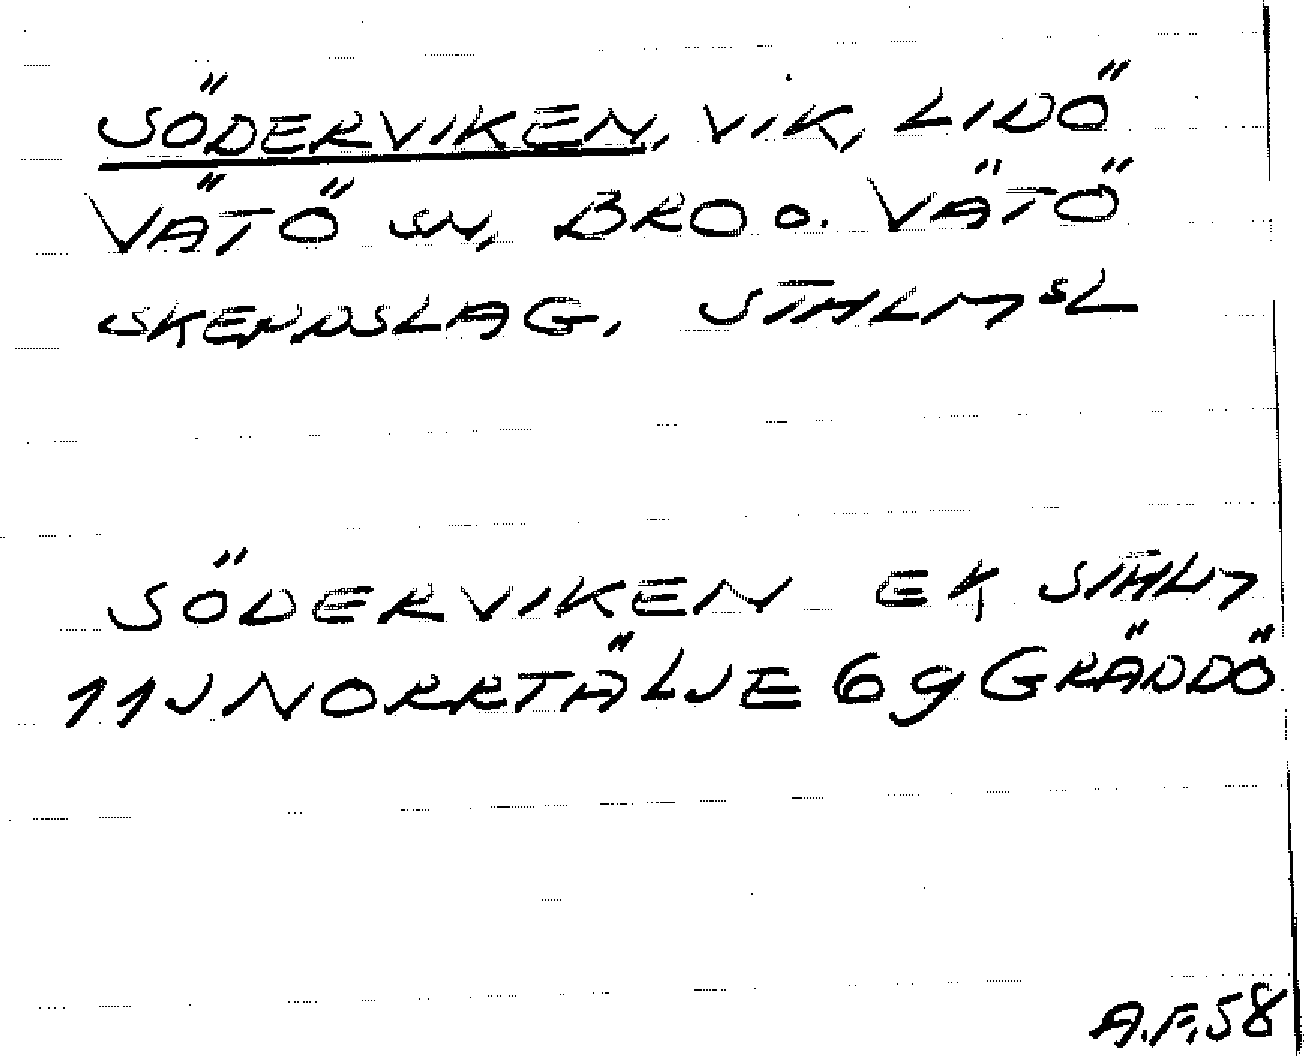 SÖDERVIKEN, VIK, LIDÖ
VÄTÖ SN, BRO O. VÄTÖ
SKEPPSLAG. STHLMSL
SÖDERVIKEN EK STHLM
11J NORRTÄLJE 6g GRÄDDÖ
A.F. 58